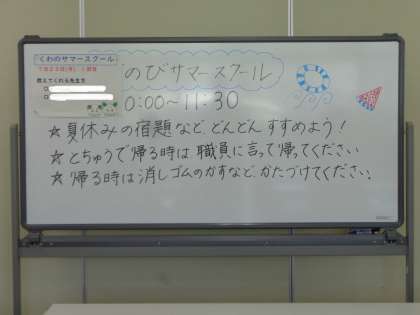 「くわのサマースクール」
教えてくれる先生方
のびサマースクール
0:00～11:30
☆夏休みの宿題など、どんどんすすめよう！
☆とちゅうで帰る時は、職員に言って帰ってください
☆帰る時は消しゴムのかすなど、かたづけてください